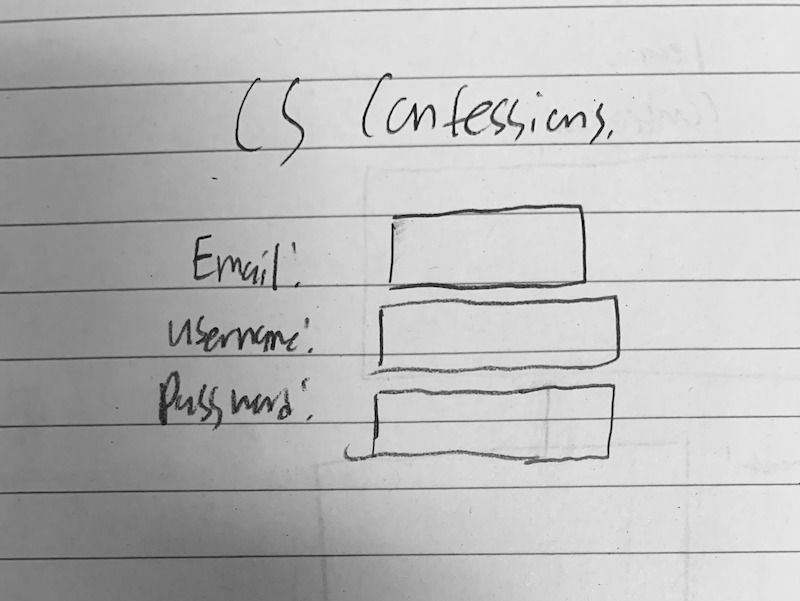 CS Confessions.
Email:
Username:
Password: